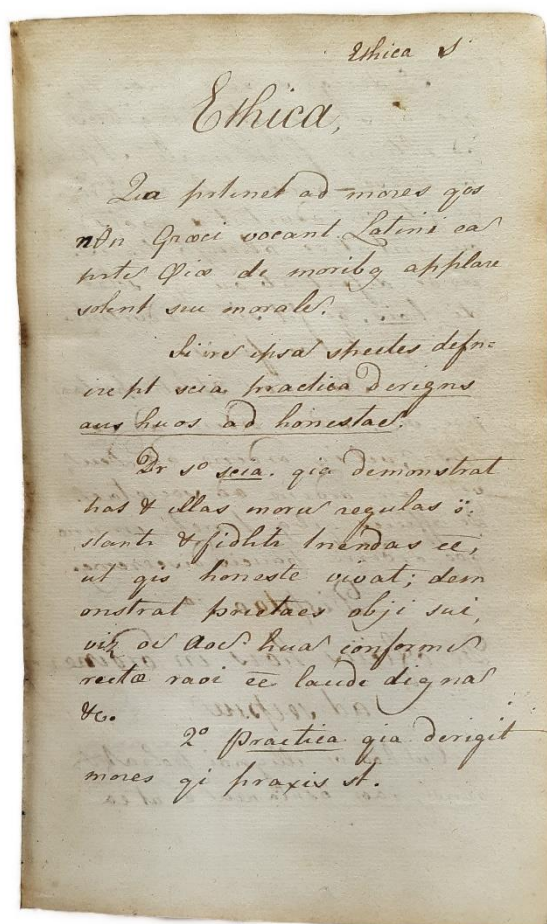 Ethica
Ethica,
Qia prtinet ad mores qos
Græci vocant Latini ea
de moribq applare
solent seu morale.
Si rē ipsa spectes defn=
iri pt scia practica derigns
aus huos ad honestaē.
Dr 1º scia. qia demonstrat
has & illas moru regulas
& fidltr tnendas eē,
ut qis honeste vivat; dem
onstrat prietaes obji sui,
viz oē aoē huā conforme
rectæ raoi eē laude dignā
&c.
2º practica qia derigit
mores qi praxis st.